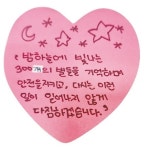 밤하늘에 빛나는
300개의 별들을 기억하며
안전을지키고, 다시는 이런
일이 일어나지 않게
다짐하겠습니다.